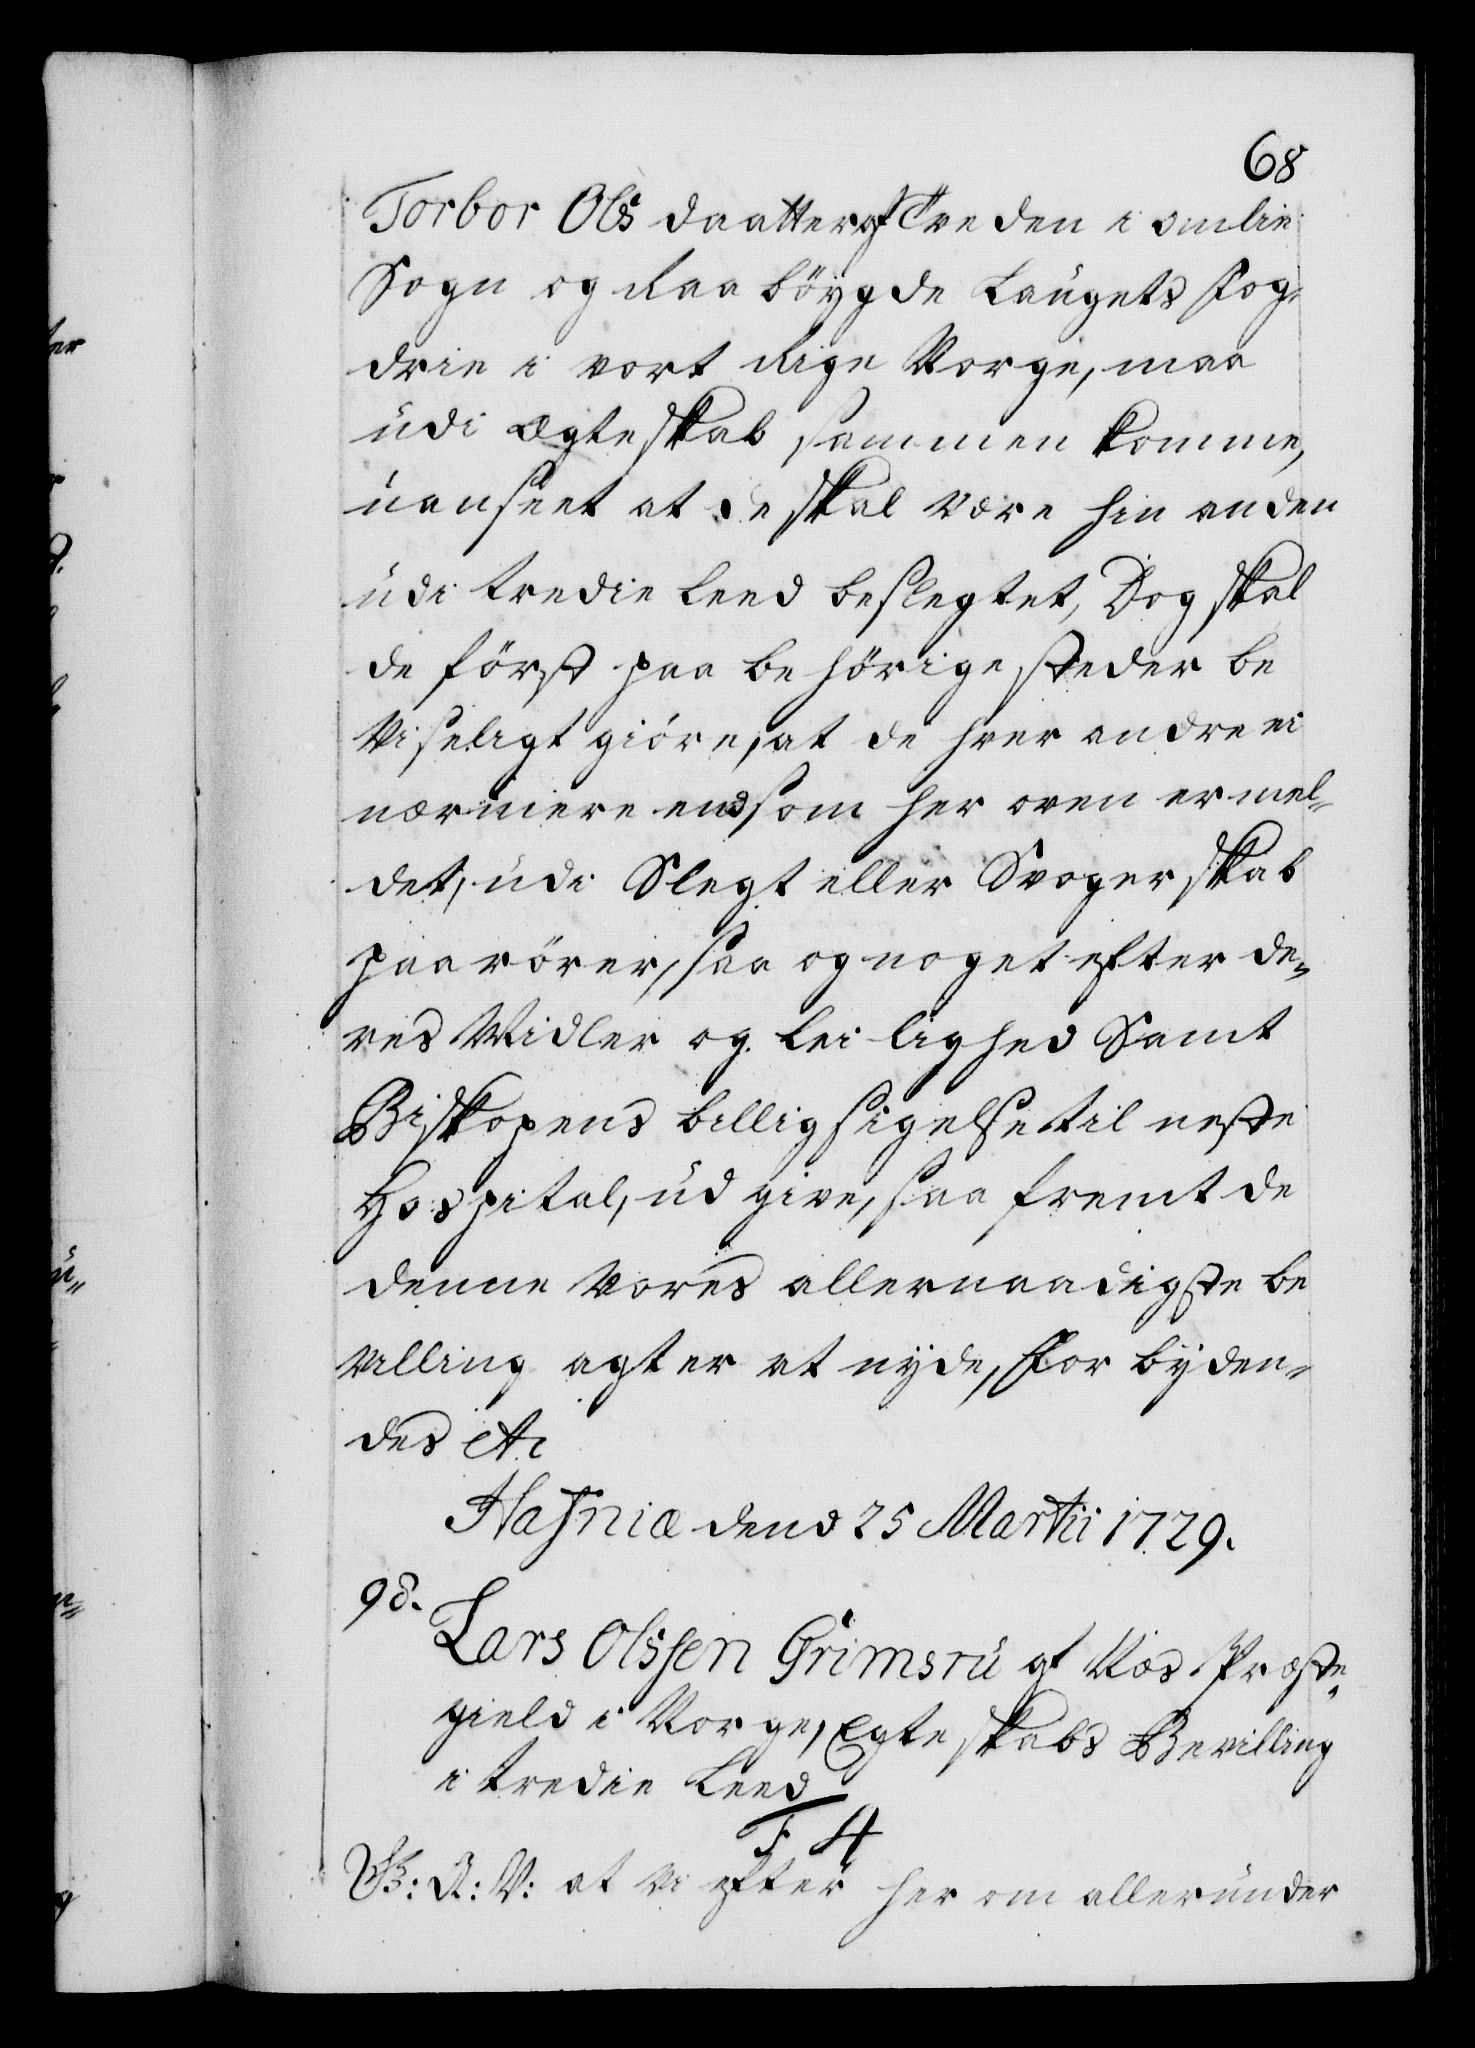 68
Torbor Ols daatter af Treden i omlie
Sogn og Raa böygde Laugets Fog,
drie i vort Rige Norge, maa
udi Ægteskab sammen komme,
uanseet at de skal være hin anden
udi tredie Leed beslegtet, Dog skal
de först paa behörige stæder be
viseligt giöre, at de hver andre ei
nærmere end som her oven er mel„
det, udi Slegt eller Svogerskab
paarörer, saa og noget efter de„
res Midler og Leilighed Samt
Biskopens billigsigelse til neste
Hospital, udgive, saa fremt de
denne Vores allernaadigste be
villing agter at nyde, Forbyden„
des etc
Hafniæ dend 25 Martii 1729.
98.
Lars Olssen Grimsru af Næs Præste„
gield i Norge, Egteskabs Bevilling
i tredie Leed
F 4
G: A: V: at Vi efter her om allerunder